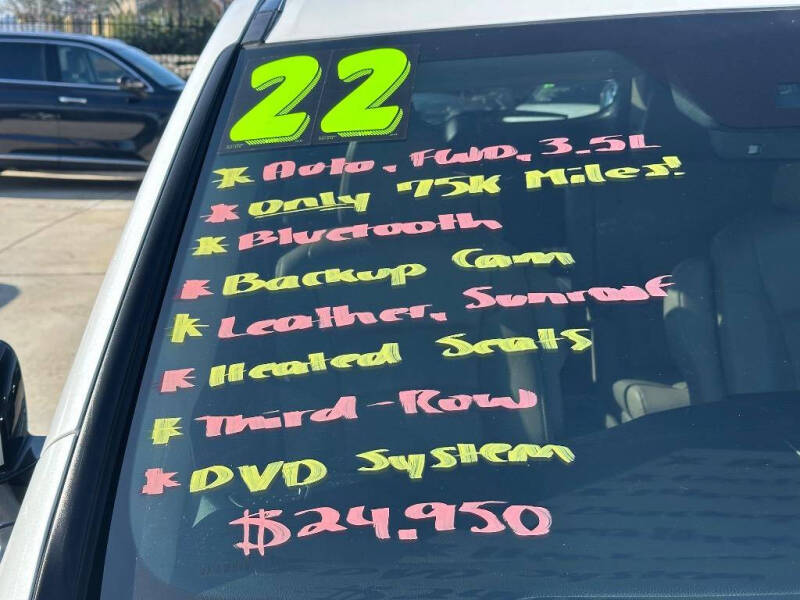 22
* Auto, FWD, 3.5L
* Only 75K Miles!
* Bluetooth
* Backup Cam
* Leather, Sunroof
* Heated Seats
* Third-Row
* DVD System
$24.950